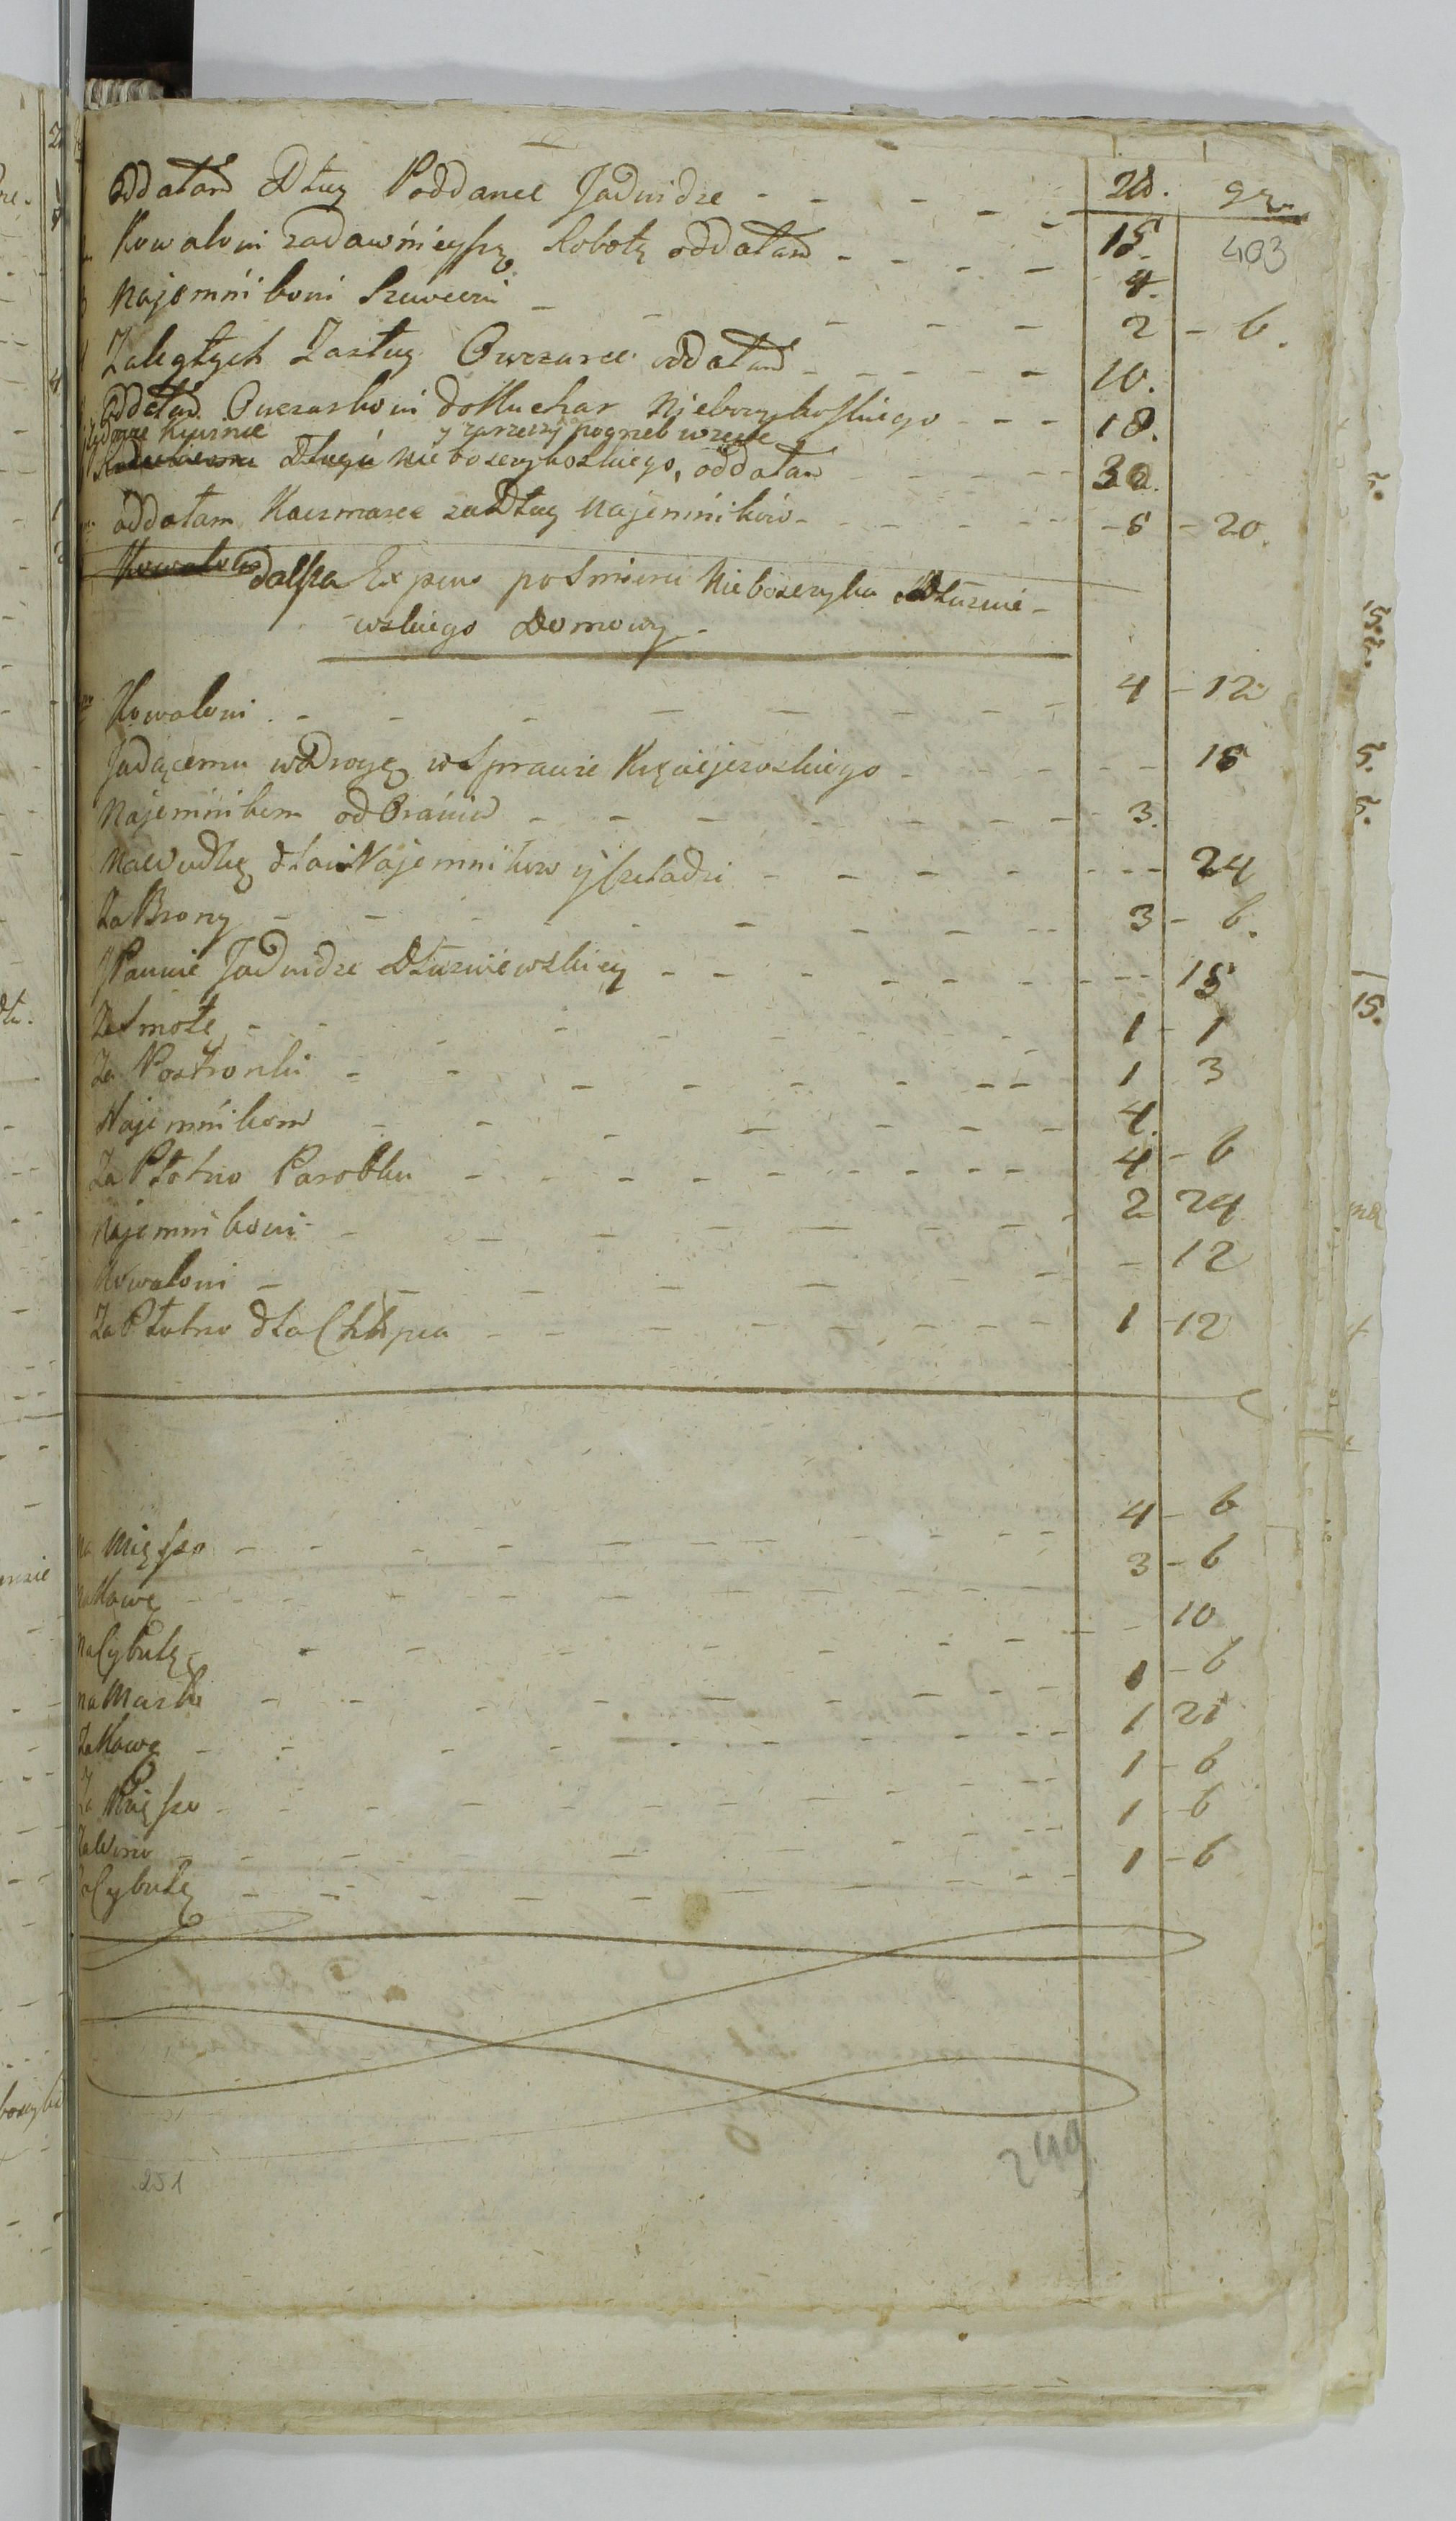 Zł. gr.
403
oddałam Dług Poddance Jadwidze - - - - - 15.
Kowalowi zadawnieyszą Robotę oddałam - - - - 4.
Najemnikowi Szewcowi - - - - - 2 - 6.
Zaległych Zasług Owczarce oddałam - - - - - 10.
oddałam Owczarkowi do Kuchar Nieboszykoskiego - - - 18.
y zarzeczy pogrzeb wzięte
Długu Nieboszczykoskiego, oddałam - - - - 30.
oddałam Karzmarce za Dług Najemników - - - - - 5 - 20.
Kowalowi dalsza Expens po Śmierci Nieboszczyka Dłuznie-
wskiego Domowy -
Kowalowi - - - - - - - - 4 - 12
Jadącemu w Drogę w Sprawie Księiejezoskiego - - - - - 15
Najemnikom od Orania - - - - - - - - 3.
na Wudkę dla Najemnikow y Czeladzi - - - - - - - 24
Za Brony - - - - - - - - 3 - 6.
Pannie Jadwidze Dłuzniewskiey - - - - - - - - 15
Za Smołę - - - - - - - 1 - 1
Za Postronki - - - - - - - - 1 3
Najemnikom - - - - - - - 4.
Za Płotno Parobku - - - - - - - - - 4 - 6
Najemnikowi - - - - - - - - 2 24
Kowalowi - - - - - - - 12
Za Płutno dla Chłopca - - - - - - - - - 1 - 12
na Mięso - - - - - - - - - - - 4 - 6
na Kawę - - - - - - - - - - 3 - 6
na Cybulę - - - - - - - - - 10
na Masło - - - - - - - - - 1 - 6
Za Kawę - - - - - - - - - 1 21
Za Mięso - - - - - - - - - - 1 - 6
Za Wino - - - - - - - - - - 1 - 6
Za Cybulę - - - - - - - - - - 1 - 6
249
251